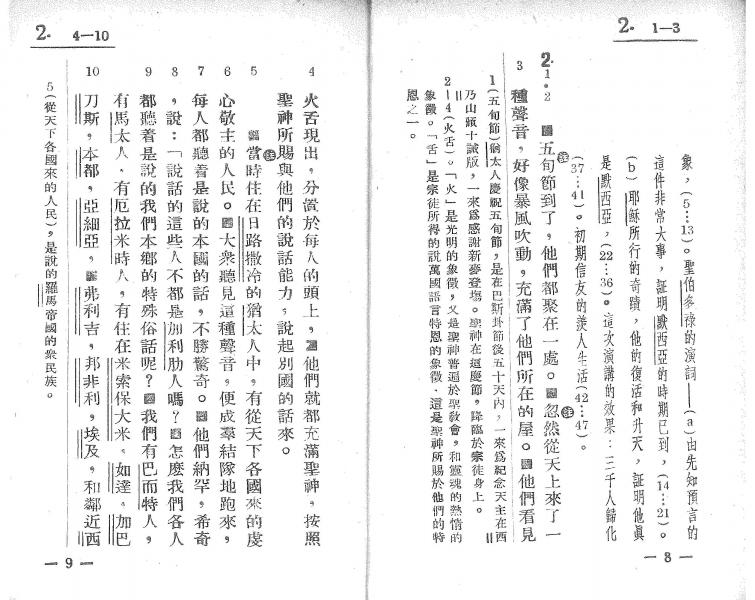 2. 1—3
象，(5…13)。聖伯多祿的演詞——(a)由先知預言的
這件非常大事，証明默西亞的時期已到，(14…21)。
(b)耶穌所行的奇蹟，他的復活和升天，証明他眞
是默西亞，(22…36)。這次演講的效果：三千人歸化
(37—41)。初期信友的羙人生活(42—47)。
2. 1.2 五旬節到了，他們都聚在一處。註忽然從天上來了一
3 種聲音，好像暴風吹動，充滿了他們所在的屋。他們看見
1(五旬節)猶太人慶祝五旬節，是在巴斯卦節後五十天內，一來爲紀念天主在西
乃山頒十誡版，一來爲感謝新麥登塲。聖神在這慶節，降臨於宗徒身上。
2—4(火舌)。「火」是光明的象徵，又是聖神普遍於聖敎會，和靈魂的熱情的
象徵。「舌」是宗徒所得的說萬國語言特恩的象徵，這是聖神所賜於他們的特
恩之一。
— 8 —
2. 4—10
4 火舌現出，分置於每人的頭上，他們就都充滿聖神，按照
聖神所賜與他們的說話能力，說起別國的話來。
5 註當時住在日路撒冷的猶太人中，有從天下各國來的虔
6 心敬主的人民。大衆聽見這種聲音，便成羣結隊地跑來，
7 每人都聽着是說的本國的話，不勝驚奇。他們納罕，希奇
8 ，說：「說話的這些人不都是加利肋人嗎？怎麼我們各人
9 都聽着是說的我們本鄉的特殊俗話呢？我們有巴而特人，
有馬太人，有厄拉米時人，有住在米索保大米，如達，加巴
10 刀斯，本都，亞細亞，弗利吉，邦非利，埃及，和鄰近西
5(從天下各國來的人民)，是說的羅馬帝國的衆民族。
— 9 —